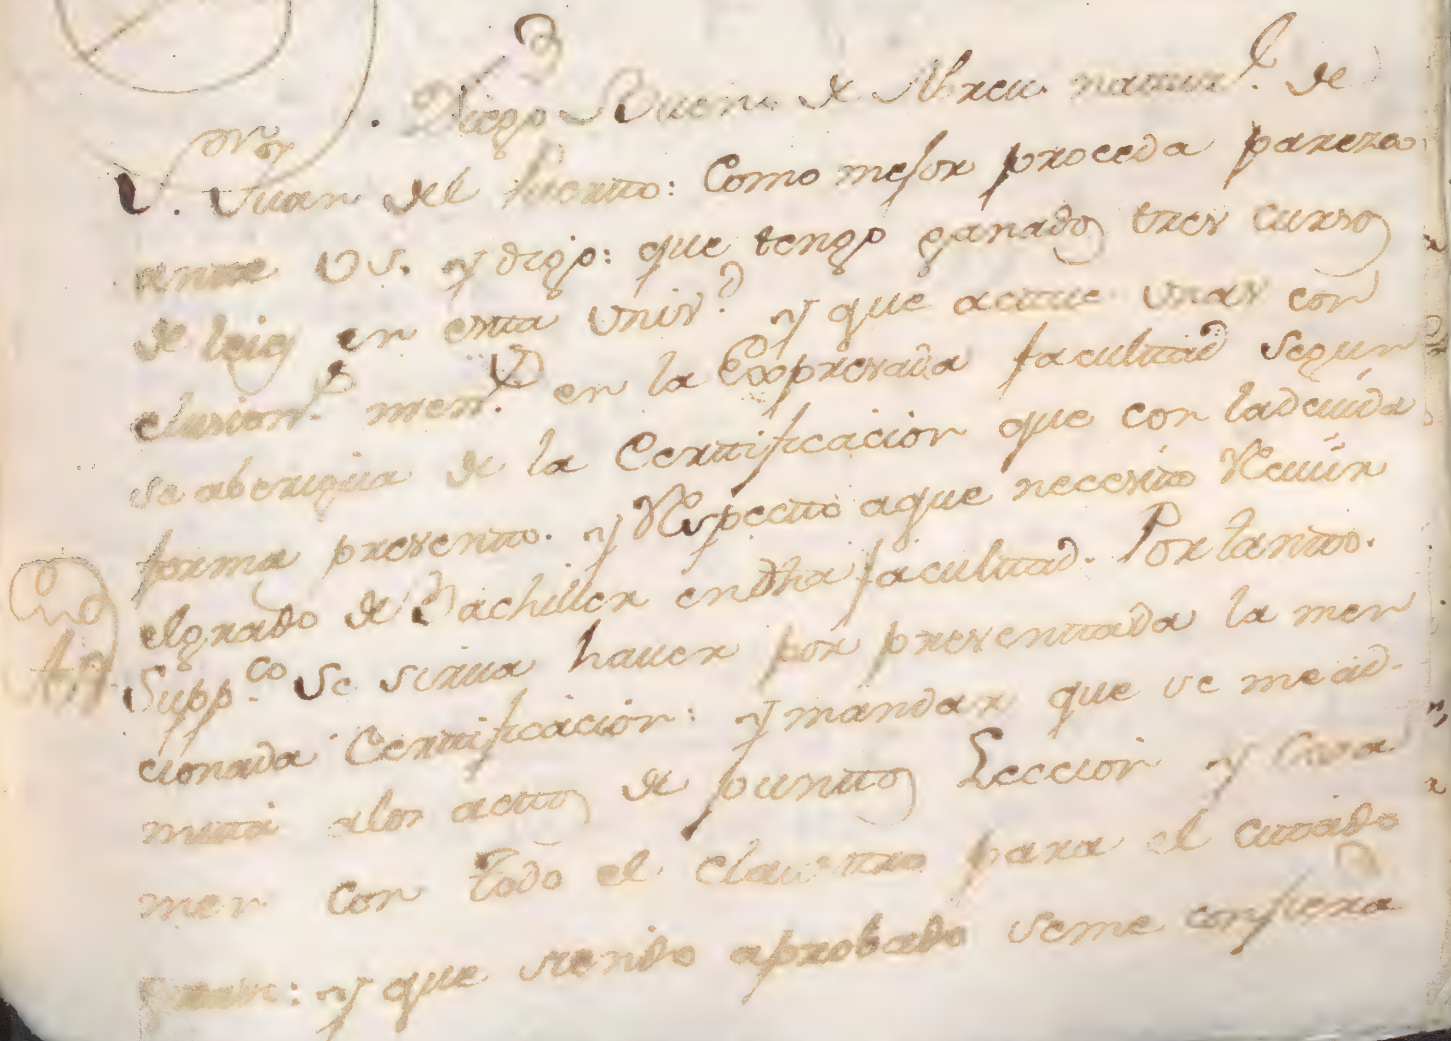 3
Diego Buen. de Abreu natur.l de
S.r Ror
S. Juan del Puerto: Como mejor proceda parezco
ante VS. y digo: que tengo ganados tres cursos
de leies en esta Univ.d y que actue unas con
clusion.s men.s en la Expresada facultad segun
se aberigua de la Certificacion que con ladeuida
forma presento. y Respecto aque necesito Reciuir
elgrado de Bachiller endha facultad. Por tanto.
Supp.co Se sirua hauer por presentada la men
cionada Certificacion: y mandar que se me ad-
mita alos actos de puntos Leccion y Exa
men con todo el claustro para el citado
: y que siendo aprobado seme confiera